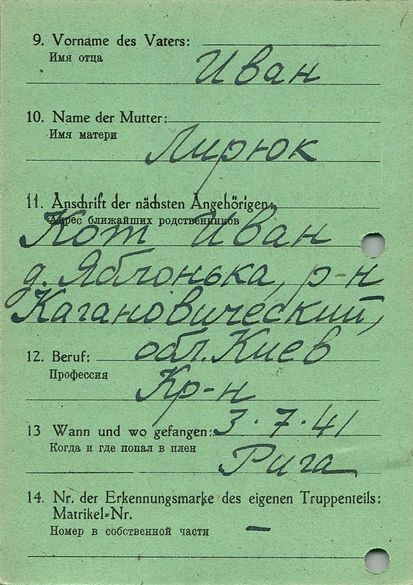 9. Vorname des Vaters:
Имя отца
Иван
10. Name der Mutter:
Имя матери
Лирюк
11. Anschrift der nächsten Angehörigen
Адрес ближайших родственников
Кот Иван
д. Яблонька, р-н
Кагановический,
обл. Киев
12. Beruf:
Профессия
Кр-н
13 Wann und wo gefangen: 3.7.41
Когда и где попал в плен
Рига
14. Nr. der Erkennungsmarke des eigenen Truppenteils:
Matrikel-Nr.
Номер в собственной части –